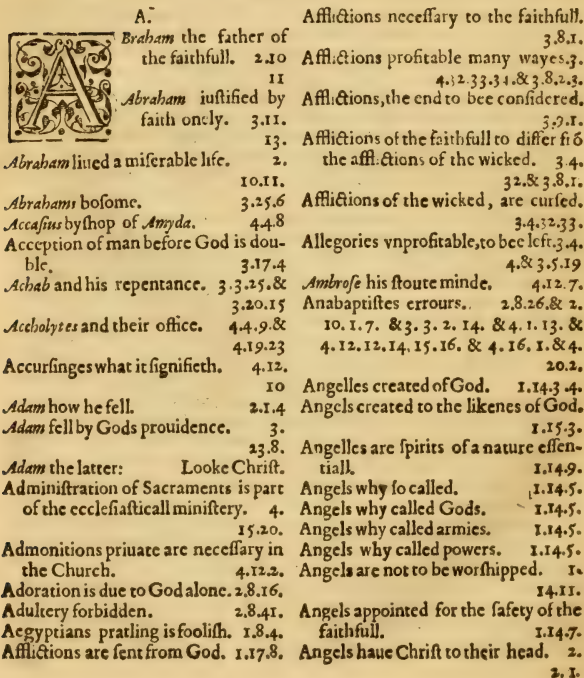 A.
ABraham the father of
the faithfull. 2.10
11
Abraham iustified by
faith onely. 3.11.
13.
Abraham liued a miserable life. 2.
10.11.
Abrahams bosome. 3.25.6
Accasius byshop of Amyda. 4.4.8
Acception of man before God is dou-
ble. 3.17.4
Achab and his repentance. 3.3.25.&
3.20.15
Accholytes and their office. 4.4.9.&
4.19.23
Accursinges what it signifieth. 4.12.
10
Adam how he fell. 2.1.4
Adam fell by Gods prouidence. 3.
23.8.
Adam the latter: Looke Christ.
Administration of Sacraments is part
of the ecclesiasticall ministery. 4.
15.20.
Admonitions priuate are necessary in
the Church. 4.12.2.
Adoration is due to God alone. 2.8.16.
Adultery forbidden. 2.8.41.
Aegyptians pratling is foolish. 1.8.4.
Afflictions are sent from God. 1.17.8.
Afflictions necessary to the faithfull.
3.8.1.
Afflictions profitable many wayes. 3.
4.32.33.34.& 3.8.2.3.
Afflictions, the end to bee considered.
3.9.1.
Afflictions of the faithfull to differ frō
the afflictions of the wicked. 3.4.
32.& 3.8.1.
Afflictions of the wicked, are cursed.
3.4.32.33.
Allegories vnprofitable, to bee left. 3.4.
4.& 3.5.19
Ambrose his stoute minde. 4.12.7.
Anabaptistes errours. 2.8.26.& 2.
10.1.7. & 3.3.2.14. & 4.1.13. &
4.12.12.14.15.16. & 4.16.1.& 4.
20.2.
Angelles created of God. 1.14.3.4.
Angels created to the likenes of God.
1.15.3.
Angelles are spirits of a nature essen-
tiall. 1.14.9.
Angels why so called. 1.14.5.
Angels why called Gods. 1.14.5.
Angels why called armies. 1.14.5.
Angels why called powers. 1.14.5.
Angels are not to be worshipped. 1.
14.11.
Angels appointed for the safety of the
faithfull. 1.14.7.
Angels haue Christ to their head. 2.
2.1.